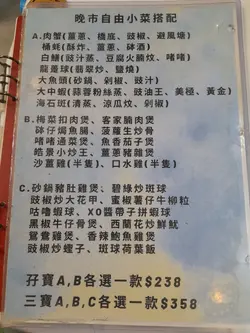 晚市自由小菜搭配
A.肉蟹(薑蔥、橋底、豉椒、避風塘)
桶蚝(酥炸、薑蔥、砵酒)
白鱔(豉汁蒸、豆腐火腩炆、啫啫)
龍躉球(翡翠炒、鹽燒)
大魚頭(砂鍋、剁椒、豉汁)
大中蝦(蒜蓉粉絲蒸、豉油王、美極、黃金)
海石斑(清蒸、涼瓜炆、剁椒)
B.梅菜扣肉煲、客家腩肉煲
砵仔焗魚腸、菠蘿生炒骨
啫啫通菜煲、魚香茄子煲
皓景小炒王、薑蔥豬雜煲
沙薑雞(半隻)、口水雞(半隻)
C.砂鍋豬肚雞煲、碧綠炒斑球
豉椒炒大花甲、蜜椒薯仔牛柳粒
咕嚕蝦球、XO醬帶子拼蝦球
黑椒牛仔骨煲、西蘭花炒鮮魷
鴛鴦雞煲、香辣鮑魚雞煲
豉椒炒蟶子、斑球荷葉飯
孖寶A,B各選一款$238
三寶A,B,C各選一款$358